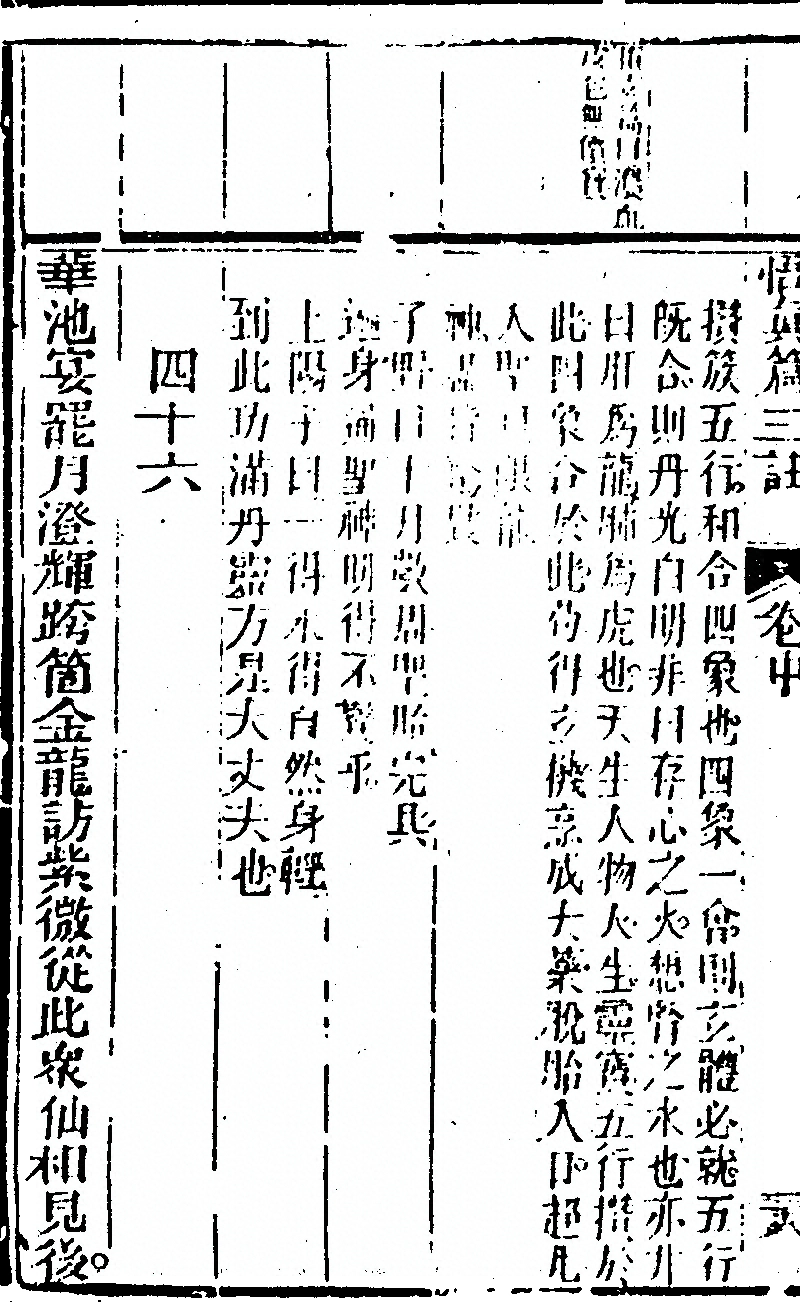 悟真篇三註 卷中
攢簇五行和合四象也四象一會則玄體必就五行
既合則丹光自明非曰存心之火想腎之水也亦非
曰肝爲龍肺爲虎也天生人物人生靈寶五行攢於
此四象合於此的得玄機烹成大藥脫胎入口超凡
入聖
子野曰十月數周聖胎完具
身通聖神明得不賢乎
上陽子曰一得永得自然身輕
到此功滿丹靈方是大丈夫也
四十六
華池宴罷月澄輝跨箇金龍訪紫微從此衆仙相見後